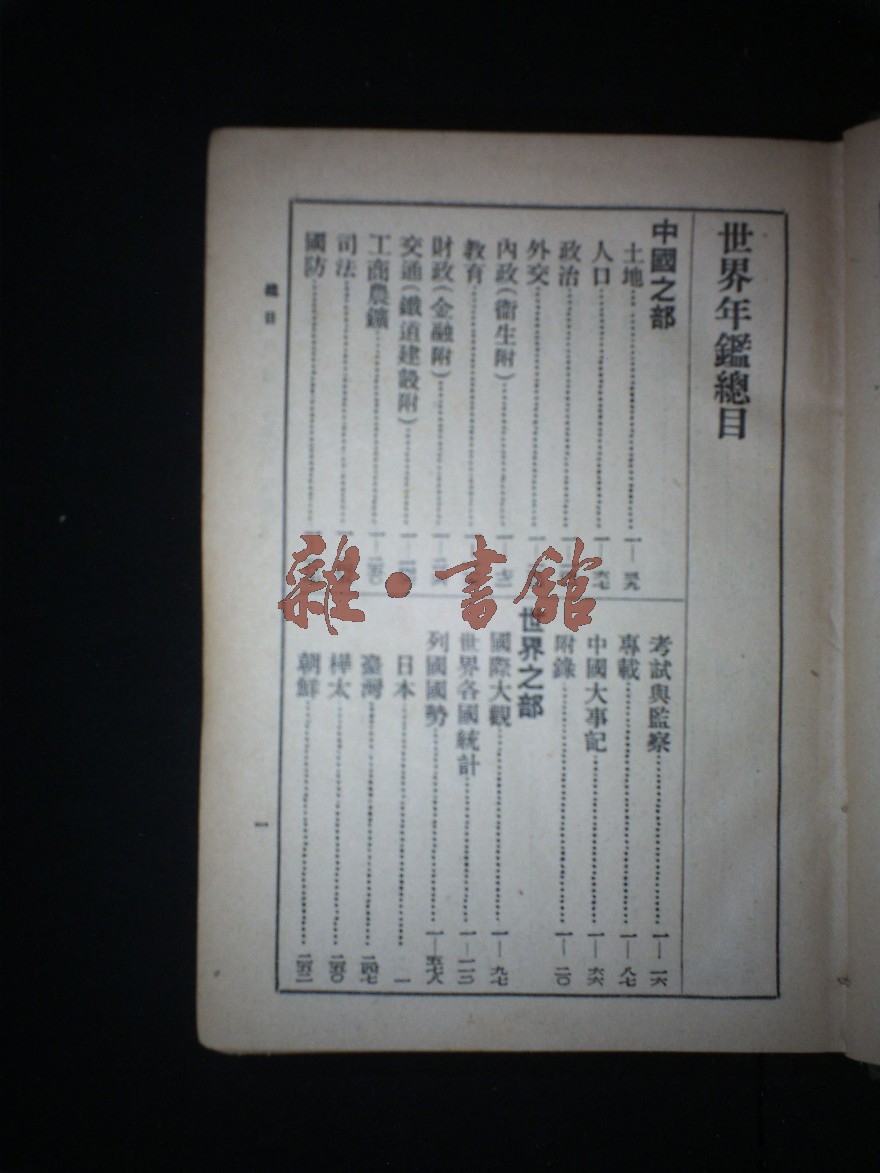 世界年鑑總目
中國之部
土地
人口
政治
外交
內政（衞生附）
教育
財政（金融附）
交通（鐵道建設附）
工商農鑛
司法
國防
考試與監察 一—一六
專載 一—八七
中國大事記 一—六六
附錄 一—二〇
世界之部
國際大觀 一—九七
世界各國統計 一—一一二
列國國勢 一—五七八
日本 一
臺灣 二四七
樺太 二五〇
朝鮮 二五二
總目
一
雜·書館